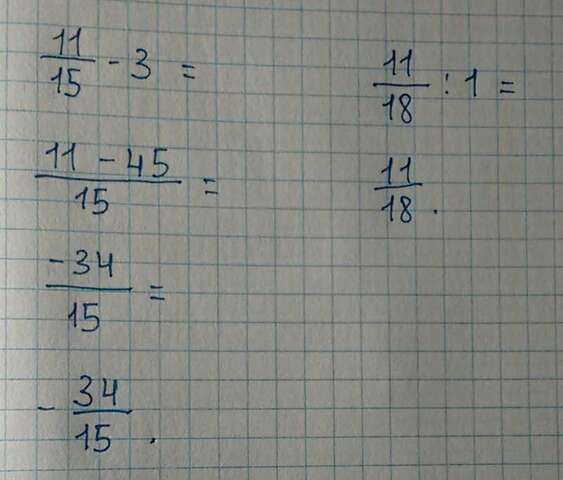 11/15 - 3 =
(11 - 45)/15 =
-34/15 =
- 34/15.
11/18 : 1 =
11/18.